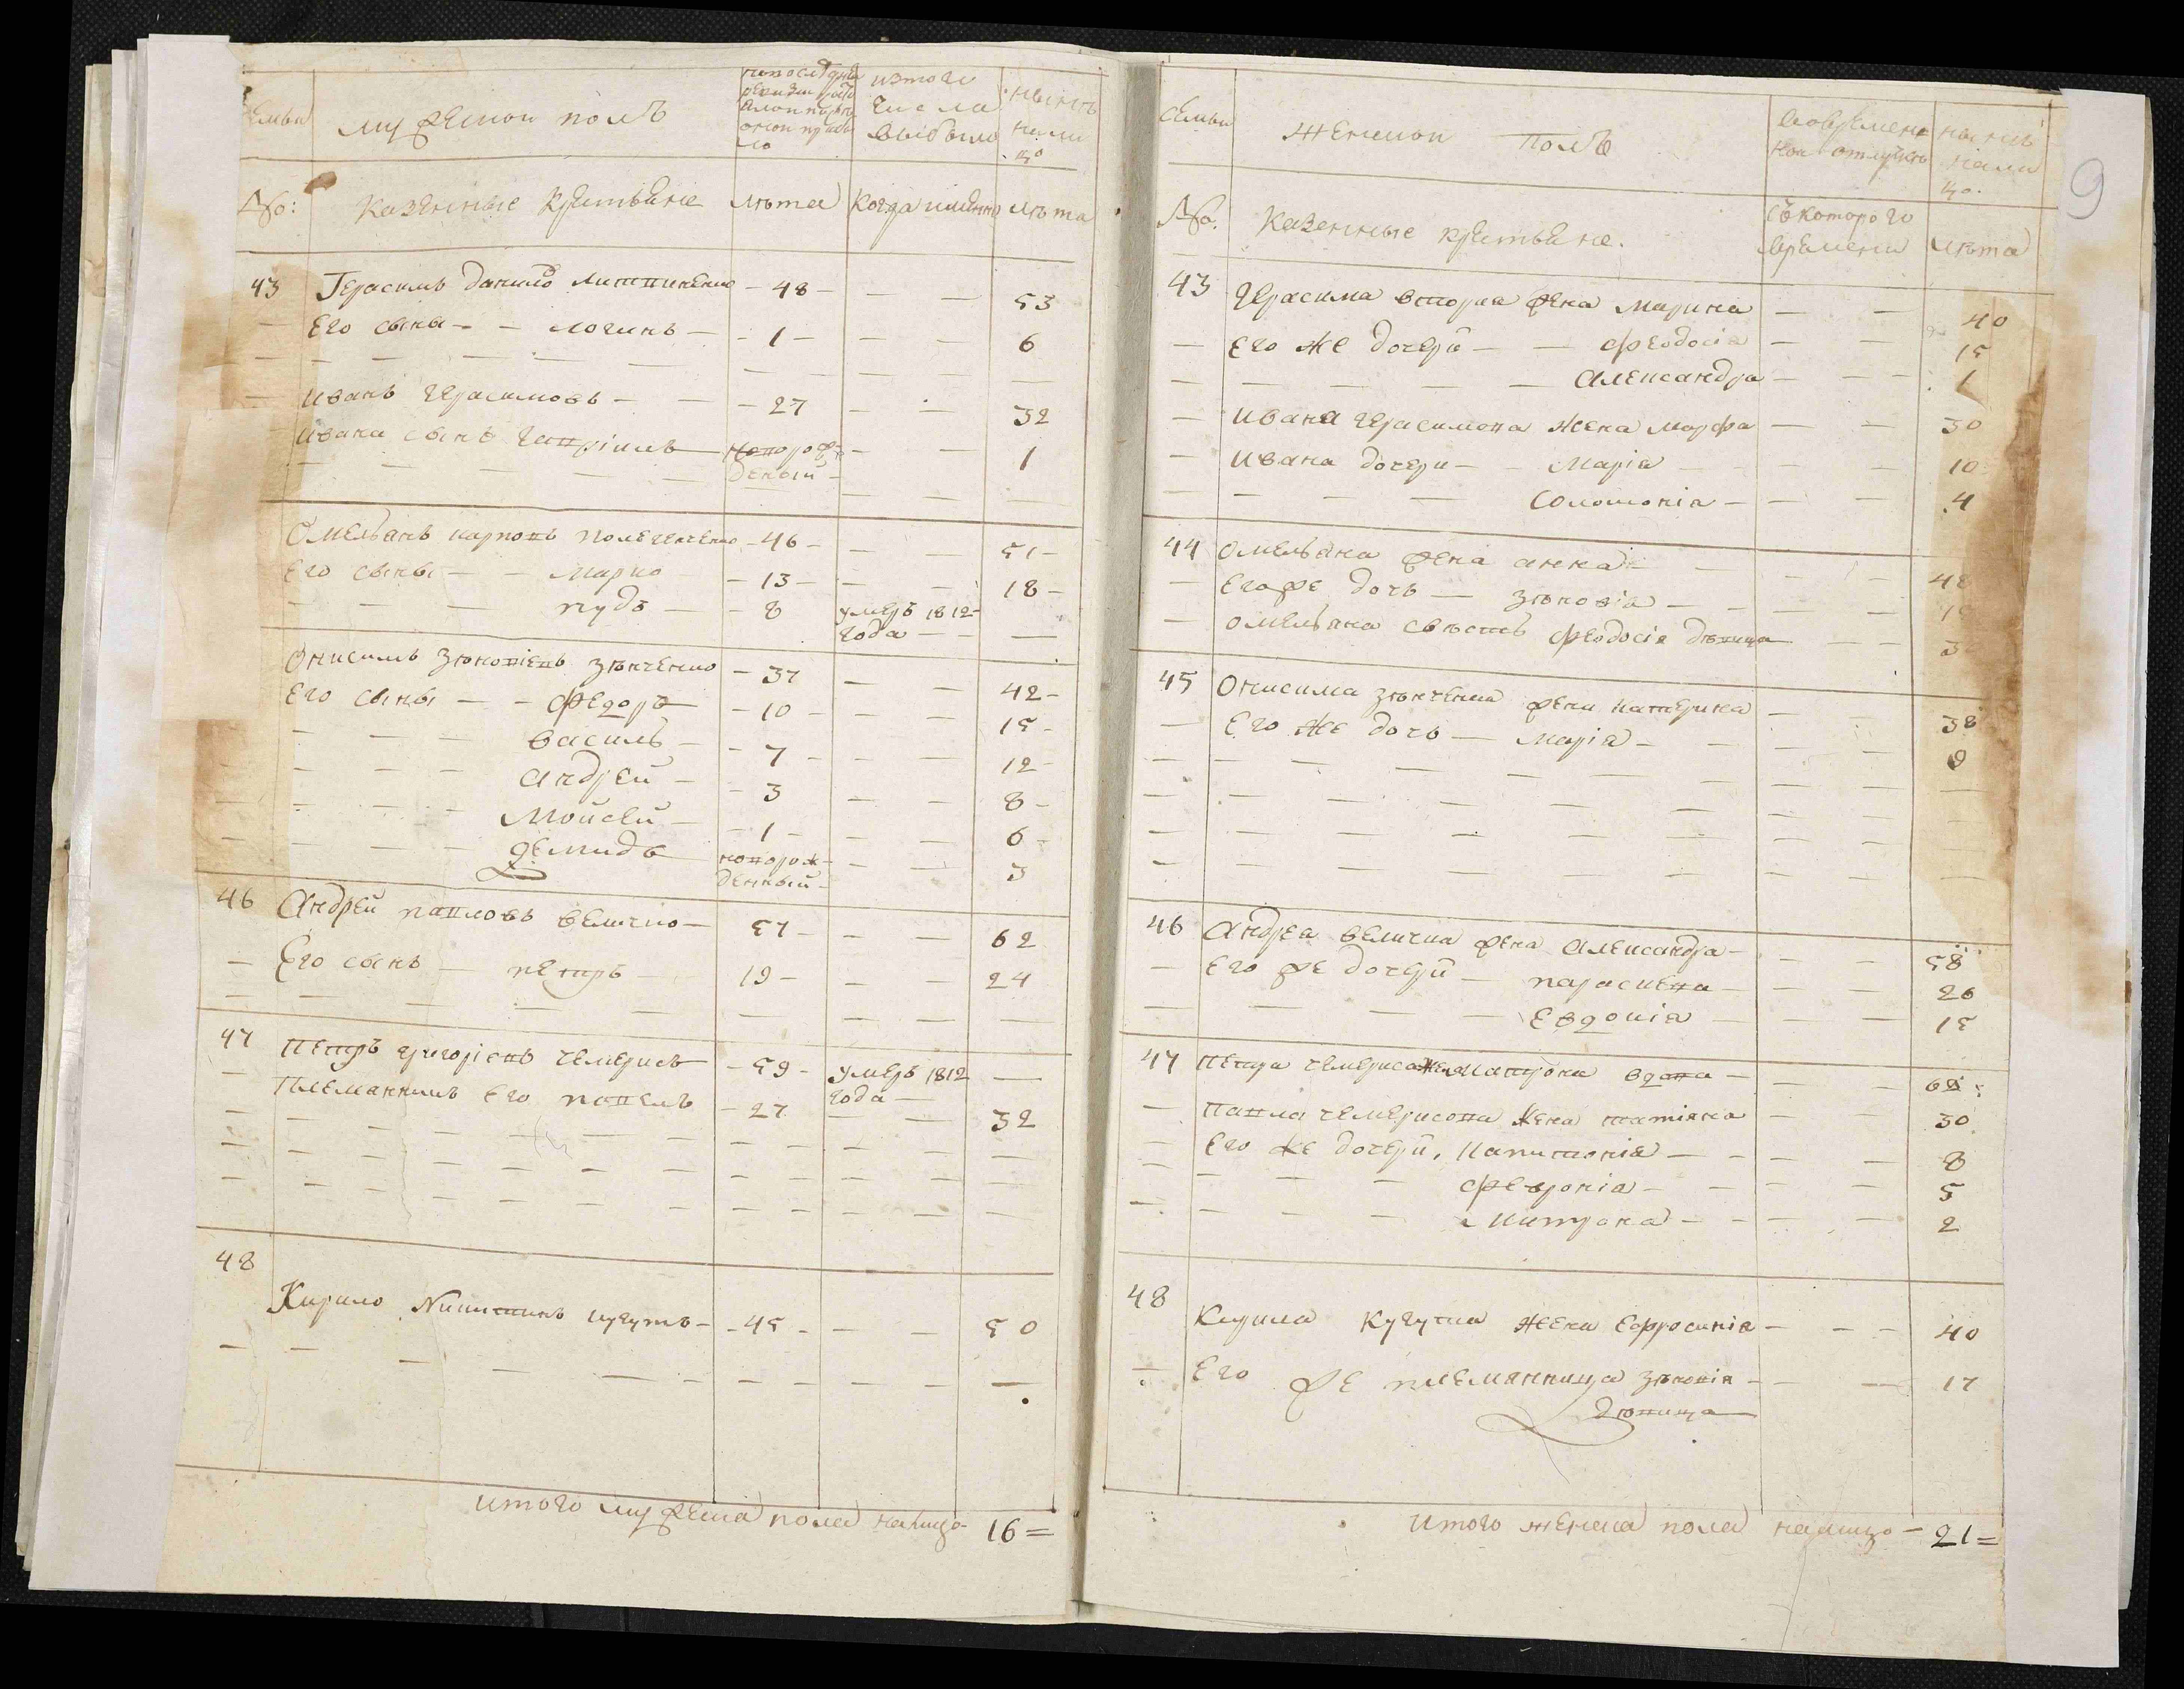 емьи мужескои полъ попоследней ревизии состояло и после оной прибыло изтого числа выбыло нынѣ нали цо
№: казенные крестьяне лѣта когда имянно лѣта
43 Герасимъ данило литвиненко - 48 - — — 53
— Его сыны - - логинъ - - 1 - — — 6
— иванъ герасимовъ - — - 27 — — 32
ивана сынъ гавріилъ ново рож деный - — — 1
Омельянъ карповъ полегенченко - 46 - — — 51 -
Его сыны — - марко - 13 - — — 18 -
— — — пудъ — - 8 умеръ 1812 -
года - - —
Онисимъ зѣновіевъ зѣнченко - 37 — — 42 -
Его сыны — - федоръ - 10 - — — 15 -
— — — василь - - 7 - — — 12 -
— — — андрей - - 3 — — 8 -
— — — Моисей - - 1 - — — 6 -
— — — демидъ новорож-
денный - — — 3
46 Андрей павловъ величко - 57 - — — 62
— Его сынъ — петръ — 19 - — — 24
47 петръ григоріевъ чемерисъ - 59 - умеръ 1812 —
года —
— Племянникъ его павелъ - 27 — 32
48
Кирило Никитинъ кугутъ - - 45 - — — 50
итого мужеска пола налицо - 16 =
9
семьи женскои полъ вовремен нои отлучкѣ нынѣ нали цо.
№. казенные крестьяне. съ которого времени лѣта
43 герасима вторая жена марина — — 40
— его же дочери — — феодосія — — 15
— — — — — александра — — 1
— ивана герасимова жена марфа — — 30
— ивана дочери - - марія — — 10
— — — — соломонія - — — 4
44 омельяна жена анна - — — 48
— егоже дочь — зѣновія — — —
— омельяна свѣсть феодосія дѣвица — —
45 Онисима зѣнченка жена катерина — — 38
— Его же дочь — марія - — — 9
46 андрея величка жена александра - — — 58
— его же дочери — параскева — — 26
— — — — евдокія — — 15
47 петра чемериса жена матрона вдова — — —
— павла чемерисова жена татіяна — — 30
— его же дочери, капитонія — — — 8
— — — — февронія - — — 5
— — — — митрона - — — 2
48 Кирила кугутка жена ефросинія - — — 40
Его же племянница зѣновія - — — 17
дѣвица
итого женска пола налицо - 21 =